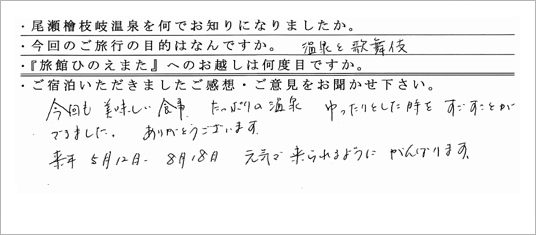 ・尾瀬檜枝岐温泉を何でお知りになりましたか。
・今回のご旅行の目的はなんですか。 温泉と歌舞伎
・『旅館ひのえまた』へのお越しは何度目ですか。
・ご宿泊いただきましたご感想・ご意見をお聞かせ下さい。
今回も 美味しい食事 たっぷりの温泉 ゆったりとした時を すごすことが
できました。 ありがとうございます。
来年 5月12日- 8月18日 元気で来られるように がんばります。